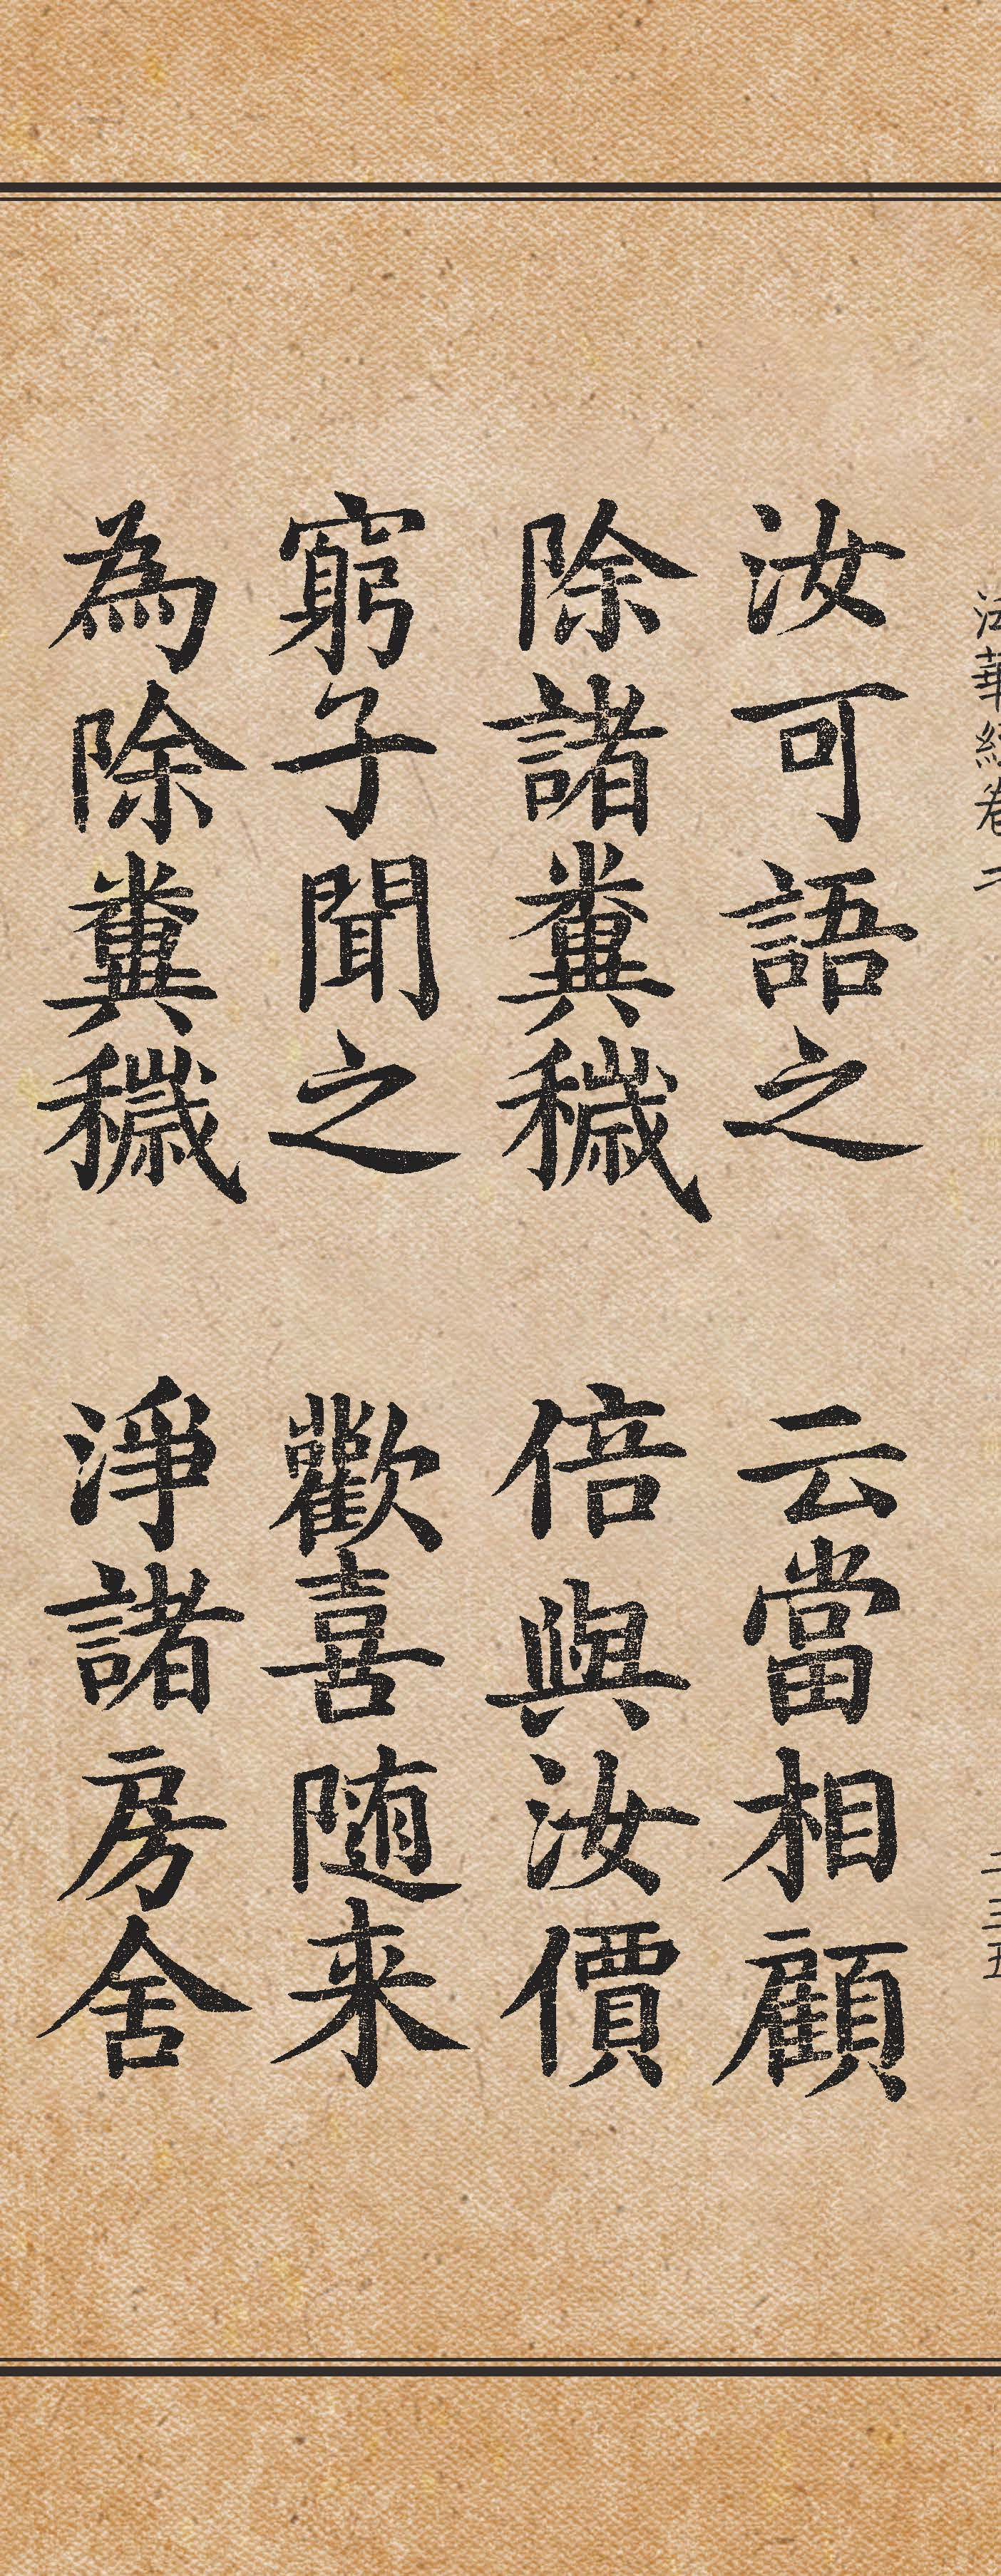 法華經卷二
二三五
汝可語之 云當相顧
除諸糞穢 倍與汝價
窮子聞之 歡喜随来
為除糞穢 淨諸房舍